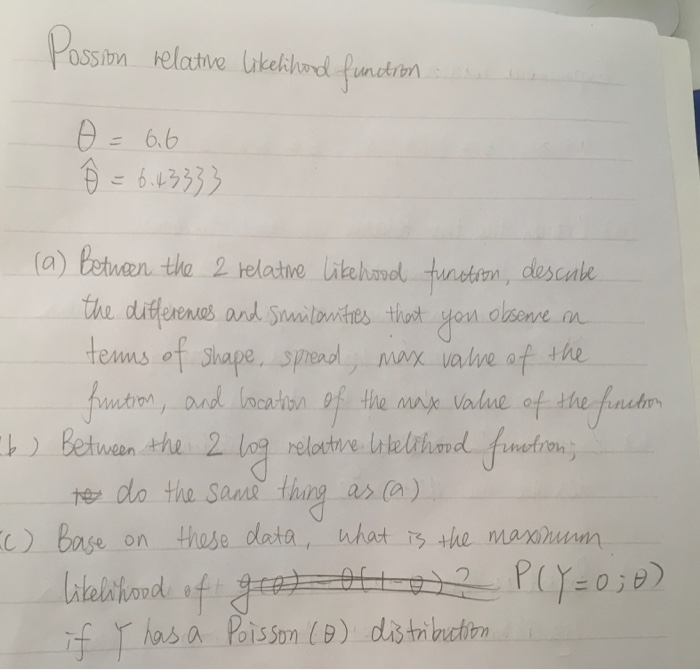 Possion relative likelihood function
θ = 6.6
θ̂ = 6.43333
(a) Between the 2 relative likehood function, describe
the differences and similarities that you observe in
terms of shape, spread, max value of the
function, and location of the max value of the function
b) Between the 2 log relative likelihood function;
do the same thing as (a)
(c) Base on these data, what is the maximum
likelihood of g(θ) = θ(1-θ)? P(Y=0;θ)
if Y has a Poisson (θ) distribution